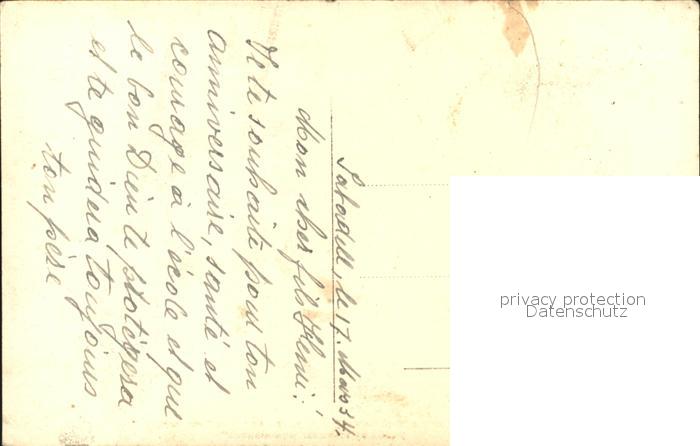 Sabadell, le 17. Mars 34.
Mon cher fils Henri!
Je te souhaite pour ton
anniversaire, santé et
courage à l'école et que
le bon Dieu te protègera
et te guidera toujours
ton père
privacy protection
Datenschutz